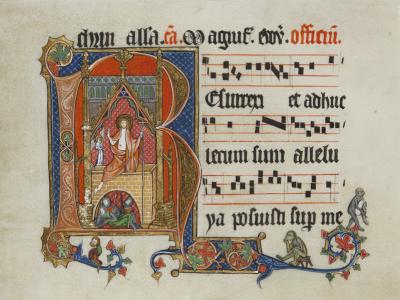 chrm alla. cā. Magnif. evov. officiū.
Resurrexi et adhuc
tecum sum allelu
ya posuisti sup me